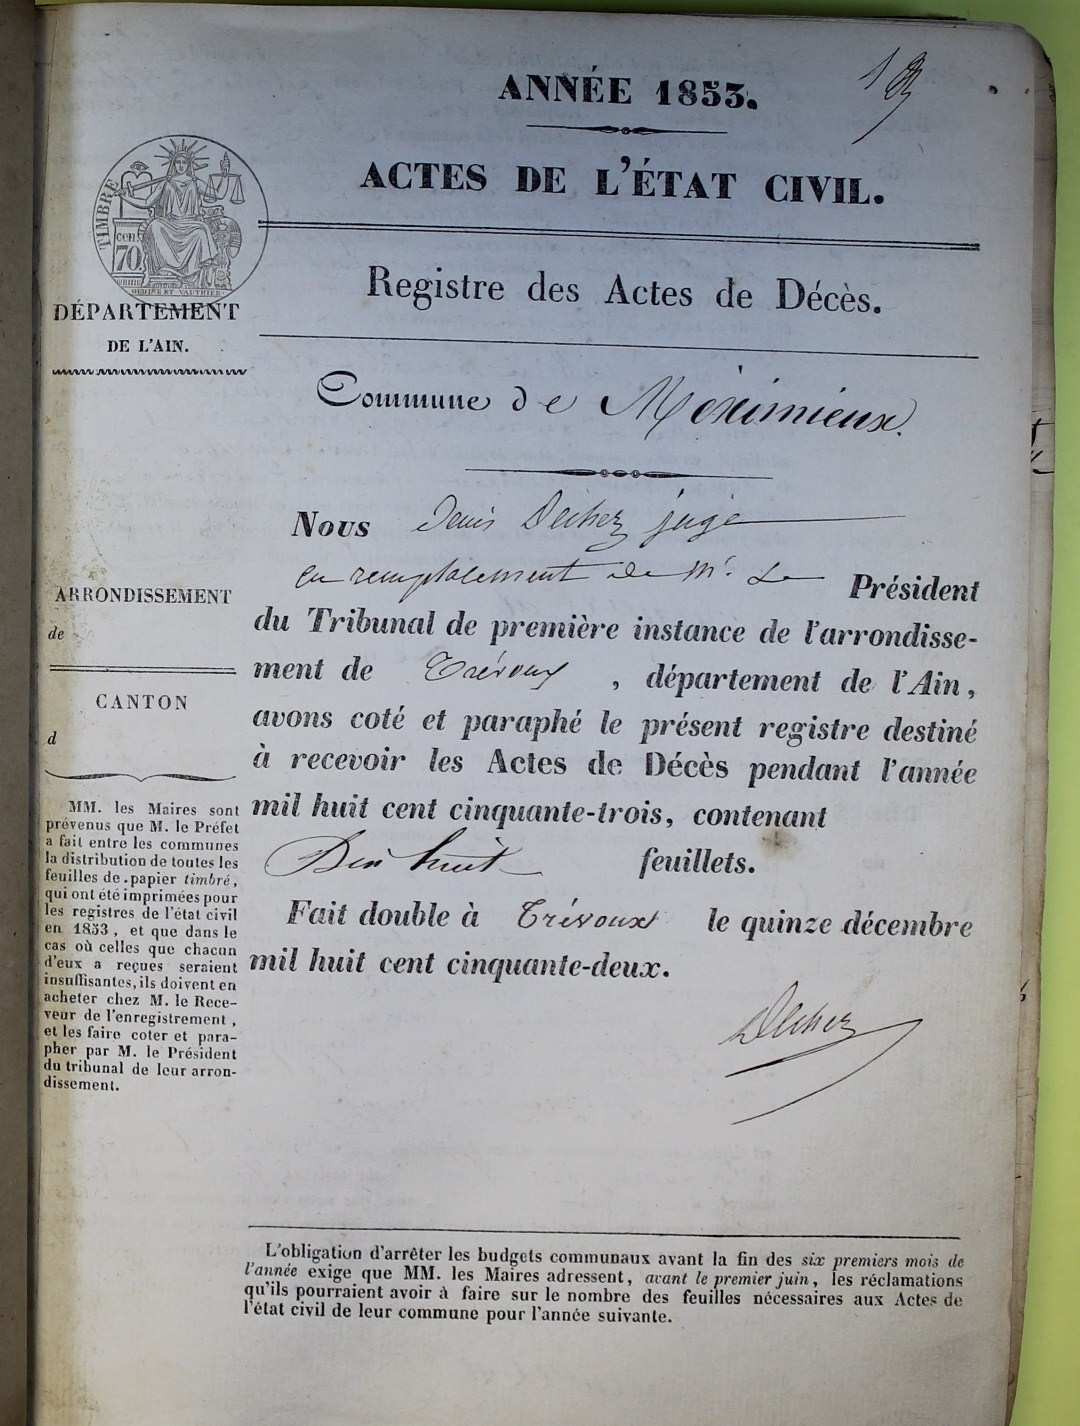 ANNÉE 1853.
ACTES DE L'ÉTAT CIVIL.
TIMBRE
cen.
70
DÉPARTEMENT
DE L'AIN.
Registre des Actes de Décès.
Commune de Méximieux.
Nous Denis Dechez juge
en remplacement de Mr. Le Président
du Tribunal de première instance de l'arrondisse-
ment de Trévoux, département de l'Ain,
avons coté et paraphé le présent registre destiné
à recevoir les Actes de Décès pendant l'année
mil huit cent cinquante-trois, contenant
Dix huit feuillets.
Fait double à Trévoux le quinze décembre
mil huit cent cinquante-deux.
Dechez
ARRONDISSEMENT
de
CANTON
d
MM. les Maires sont
prévenus que M. le Préfet
a fait entre les communes
la distribution de toutes les
feuilles de papier timbré,
qui ont été imprimées pour
les registres de l'état civil
en 1853, et que dans le
cas où celles que chacun
d'eux a reçues seraient
insuffisantes, ils doivent en
acheter chez M. le Rece-
veur de l'enregistrement,
et les faire coter et para-
pher par M. le Président
du tribunal de leur arron-
dissement.
L'obligation d'arrêter les budgets communaux avant la fin des six premiers mois de
l'année exige que MM. les Maires adressent, avant le premier juin, les réclamations
qu'ils pourraient avoir à faire sur le nombre des feuilles nécessaires aux Actes de
l'état civil de leur commune pour l'année suivante.